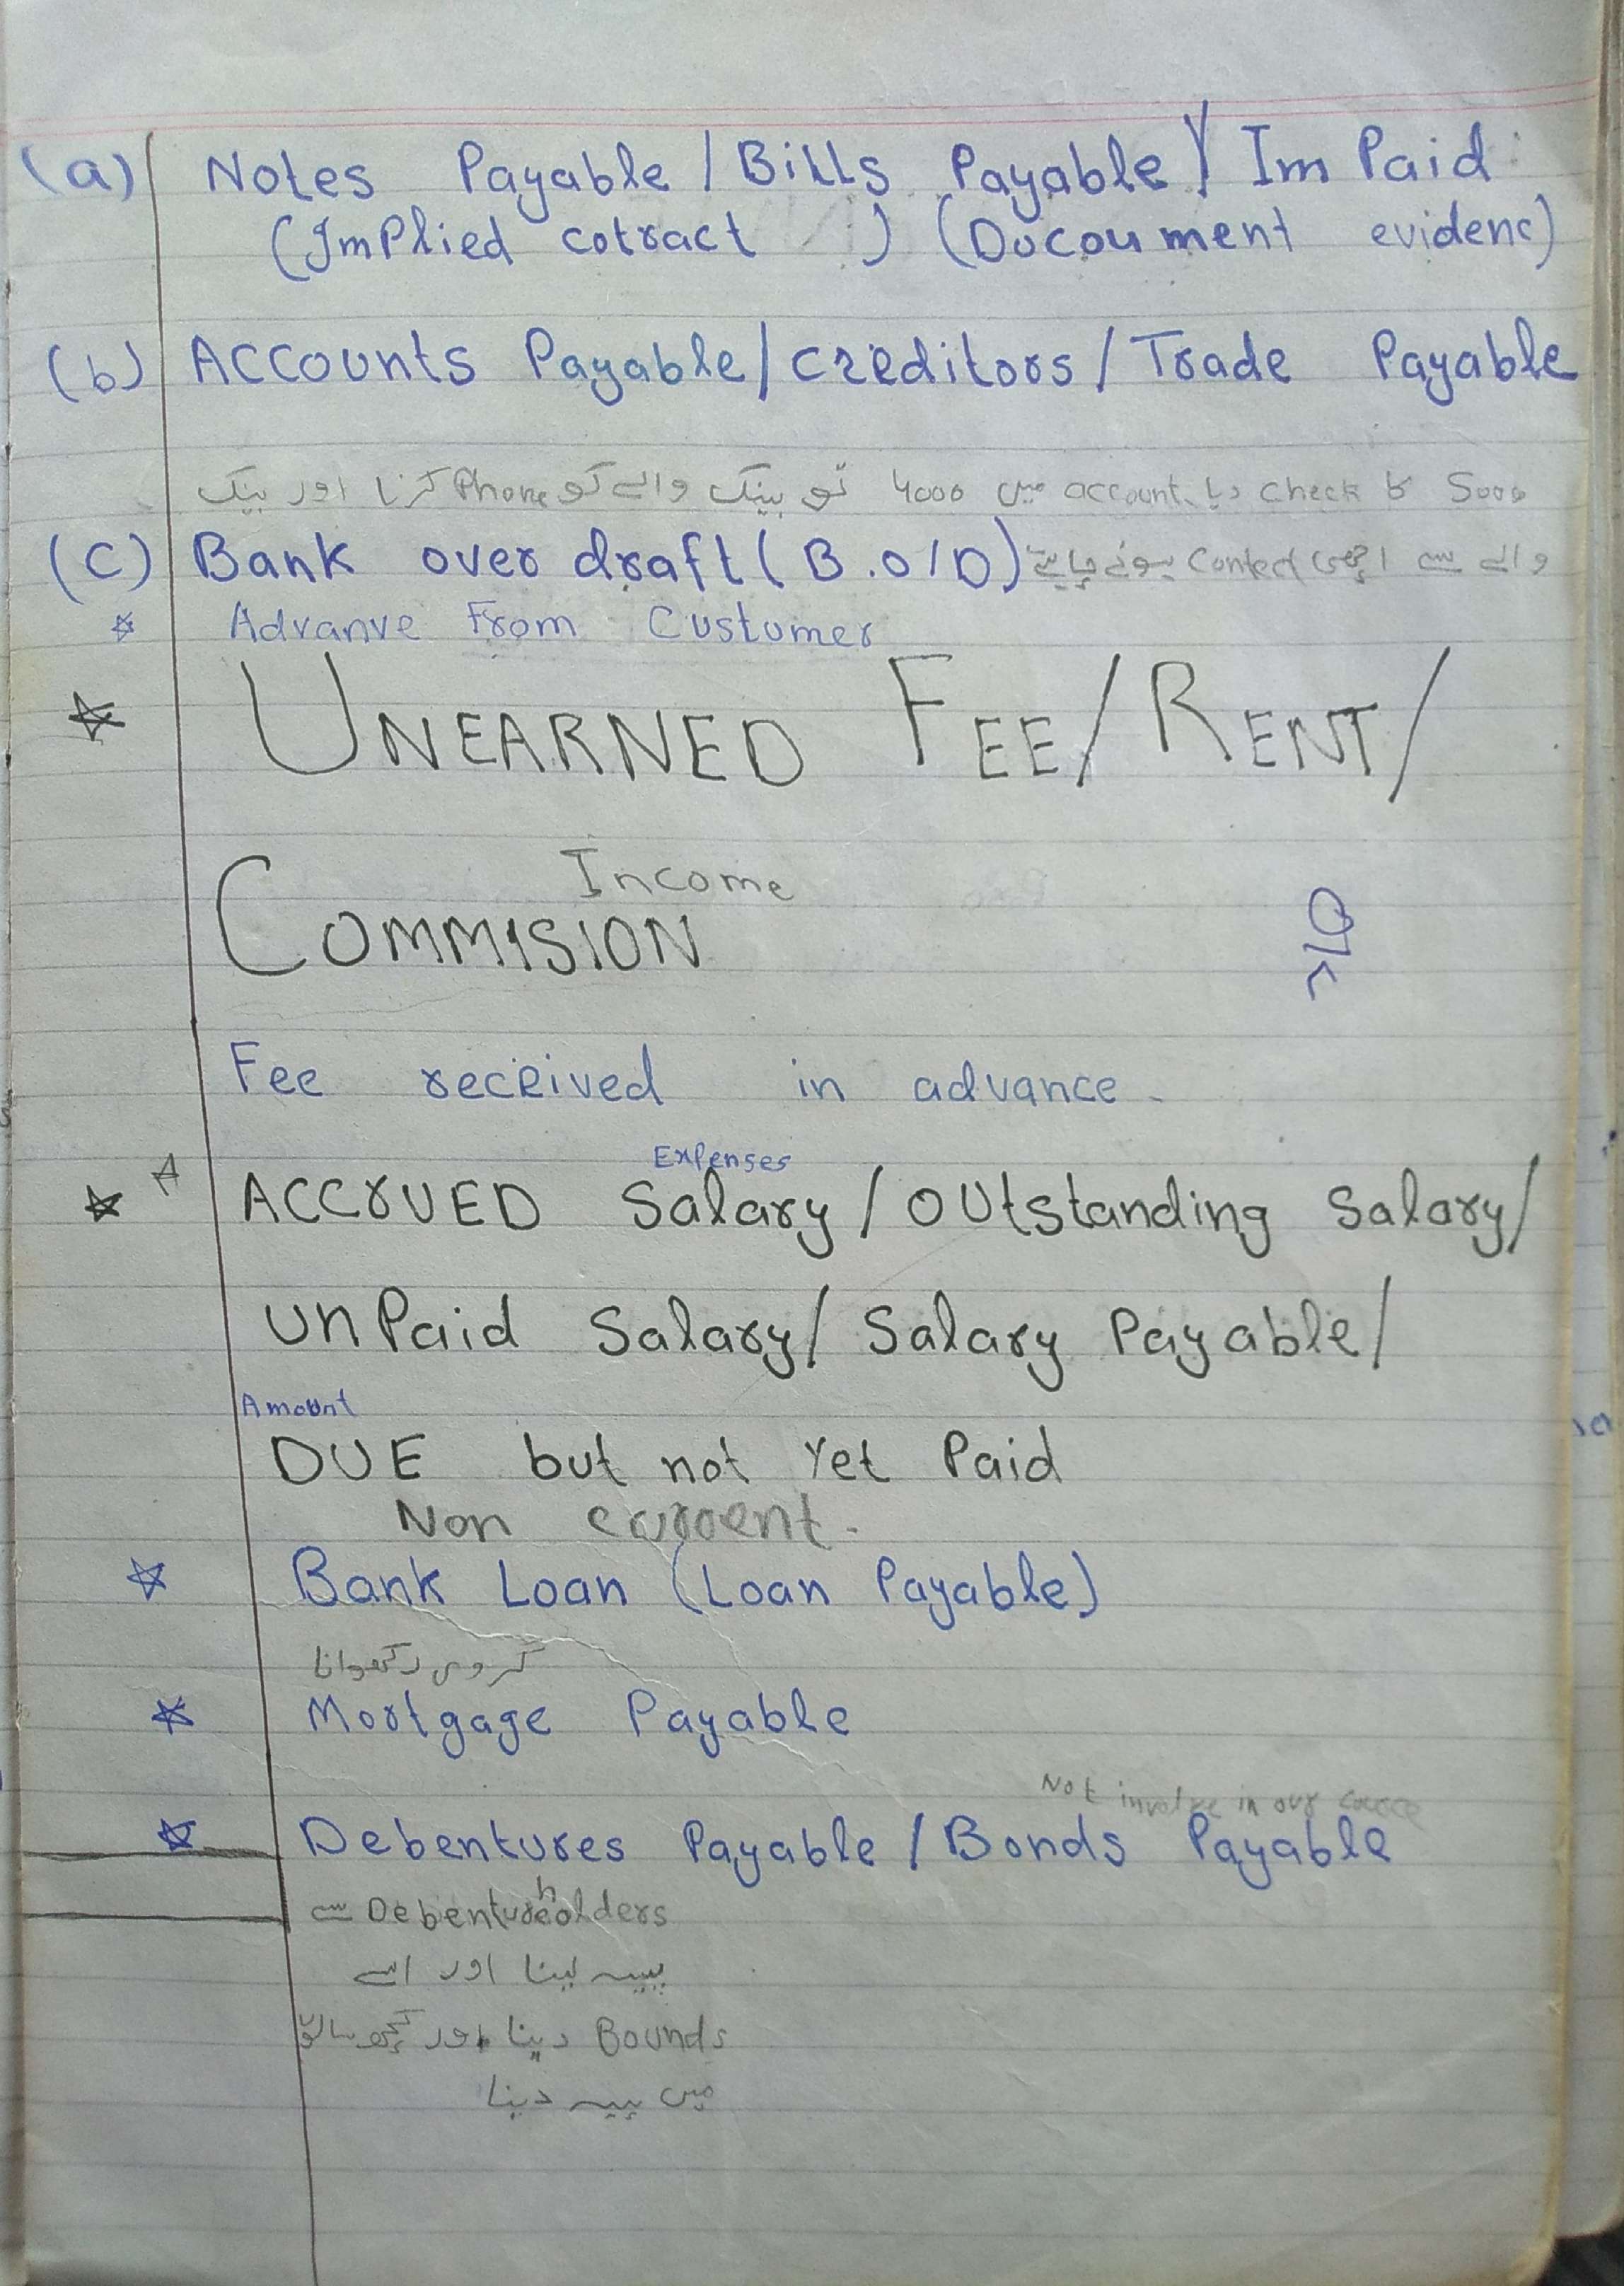 (a) Notes Payable / Bills Payable / Im Paid
(Implied cotract ) (Docoument evidenc)
(b) Accounts Payable / creditors / Trade Payable
5000 کا check دیا account میں 4000 تو بینک والے کو Phone کرنا اور بینک
(C) Bank over draft ( B.O/D)
والے سے اچھی Contect ہونے چاہیے
☆ Advanve From Custumer
☆ UNEARNED FEE/RENT/
Income
COMMISION
Fee received in advance.
Expenses
☆ A ACCrUED Salary / OUtstanding Salary/
UnPaid Salary/ Salary Payable/
Amount
DUE but not Yet Paid
Non current.
☆ Bank Loan (Loan Payable)
گروی رکھوانا
☆ Mortgage Payable
Not involve in our cource
☆ Debentures Payable / Bonds Payable
Debentureholders سے
پیسہ لینا اور اسے
Bounds دینا اور کچھ سالوں
میں پیسہ دینا